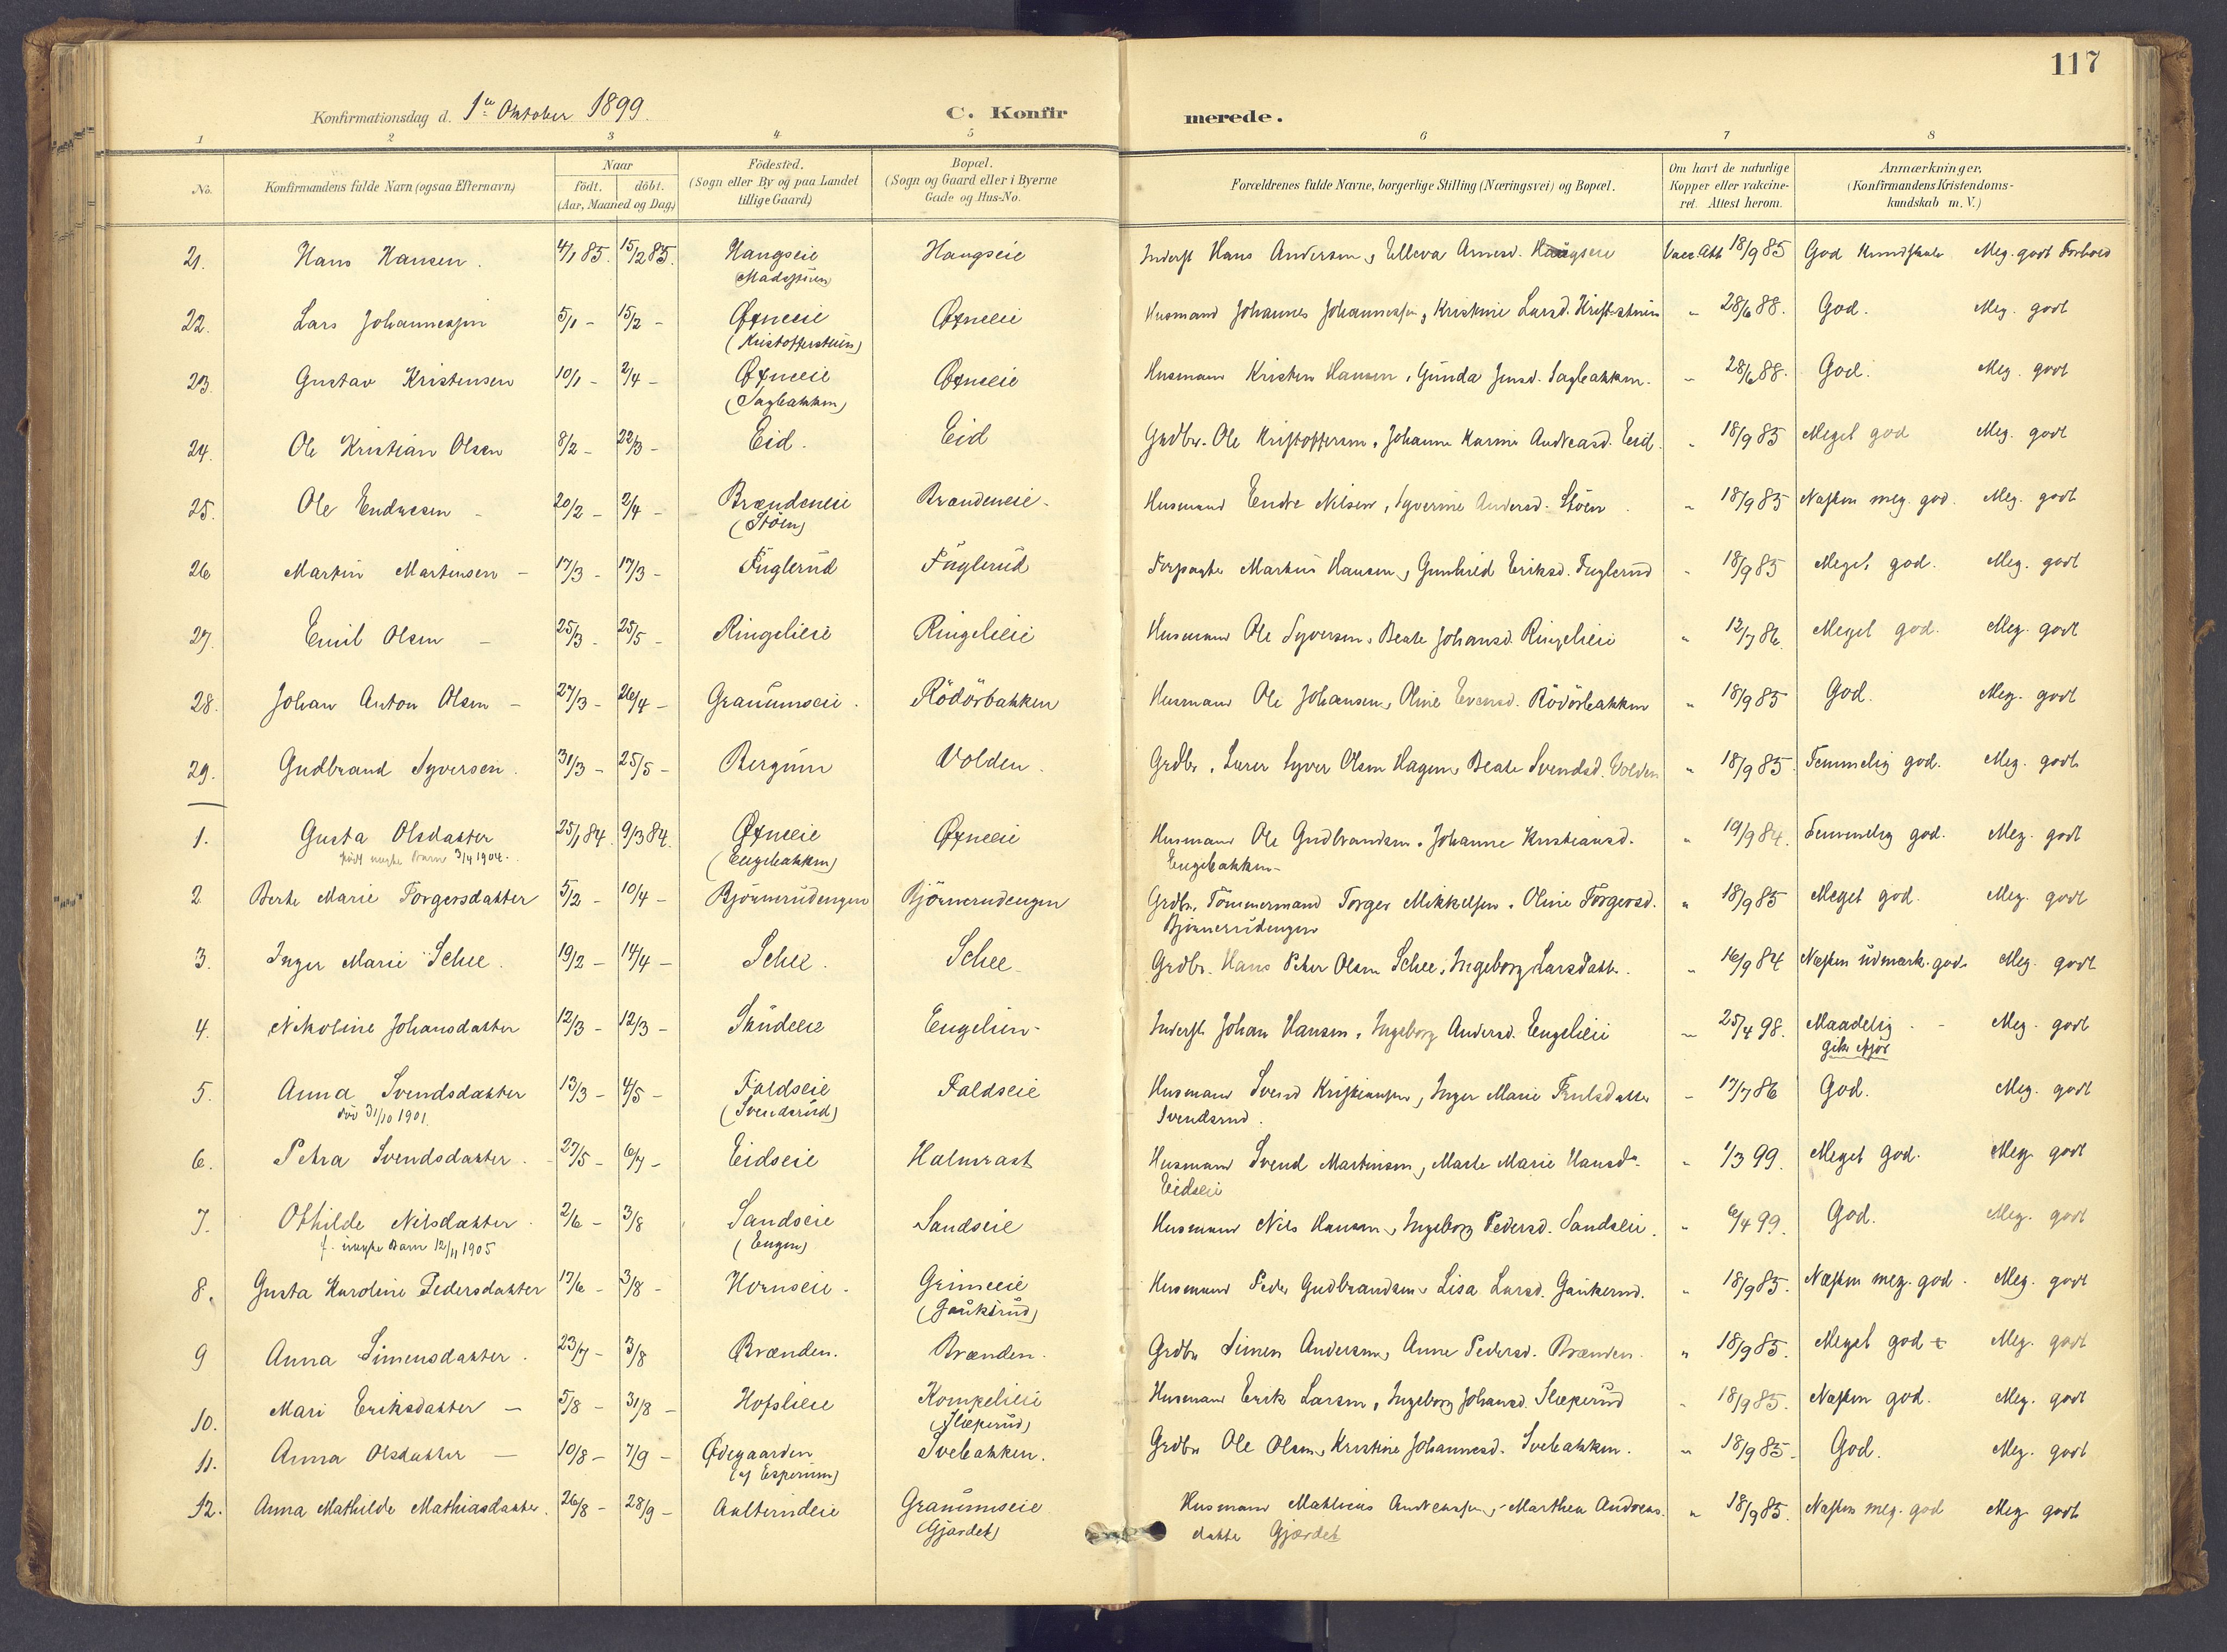 117
Konfirmationsdag d. 1ste Oktober 1899.
C. Konfirmerede.
1 2 3 4 5 6 7 8
No. Konfirmandens fulde Navn (ogsaa Efternavn) Naar födt. döbt. (Aar, Maaned og Dag.) Födested. (Sogn eller By og paa Landet tillige Gaard) Bopæl. (Sogn og Gaard eller i Byerne Gade og Hus-No. Forældrenes fulde Navne, borgerlige Stilling (Næringsvei) og Bopæl. Om havt de naturlige Kopper eller vaccineret. Attest herom. Anmærkninger. (Konfirmandens Kristendomskundskab m. V.)
21. Hans Hansen. 4/1 85. 15/2 85. Haugseie Haugseie Inderst Hans Andersen, Elleva Arnesd. Haugseie Vacc. Att 18/9 85 God Kundskab Meg. godt Forhold
22. Lars Johannessen 5/1 - 15/2 - Øxneeie (Kristofferstuen) Øxneeie Husmand Johannes Johannessen, Kristine Larsd. Krist.stuen " 28/6 88. God. Meg. godt
23. Gustav Kristensen 10/1 - 2/4 - Øxneeie (Sagbakken) Øxneeie Husmand Kristen Hansen, Gunda Jensd. Sagbakken. " 28/6 88. God. Meg. godt
24. Ole Kristian Olsen 8/2 - 22/3 - Eid. Eid Grdbr. Ole Kristoffersen, Johanne Karine Andreasd. Eid. " 18/9 85 Meget god Meg. godt
25. Ole Endresen - 20/2 - 2/4 - Brændeneie (Stöen) Brændeneie - Husmand Endre Nilsen, Syverine Andersd. Stöen. " 18/9 85 Næsten meg. god. Meg. godt
26 Martin Martinsen - 17/3 - 17/3 - Fuglerud Fuglerud Forpagter Martin Hansen, Gunhild Eriksd. Fuglerud " 18/9 85 Meget god. Meg. godt
27. Emil Olsen - 25/3 - 25/5 - Ringelieie Ringelieie Husmand Ole Syversen, Beate Johansd. Ringelieie " 12/7 86. Meget god. Meg. godt
28. Johan Anton Olsen - 27/3 - 26/4 - Granumseie. Rödörbakken Husmand Ole Johansen, Oline Evensd. Rödörbakken " 18/9 85 God. Meg. godt
29. Gudbrand Syversen. 31/3 - 25/5 - Bergum Volden. Grdbr. Lærer Syver Olsen Hagen, Beate Svendsd. Volden " 18/9 85. Temmelig god. Meg. godt
1. Gusta Olsdatter 25/1 84. 9/3 84. Øxneeie Øxneeie Husmand Ole Gudbrandsen, Johanne Kristiansd. " 19/9 84. Temmelig god. Meg. godt
födt uægte Barn 3/4 1904. (Engebakken) Engebakken -
2 Berte Marie Torgersdatter 5/2 - 10/4 - Björnerudengen Björnerudengen Grdbr. Tömmermand Torger Mikkelsen, Oline Torgersd. " 18/9 85 Meget god. Meg. godt
Björnerudengen
3. Inger Marie Schee. 19/2 - 14/4 - Schee. Schee. Grdbr. Hans Peter Olsen Schee, Ingeborg Larsdatt. " 16/9 84 Næsten udmærk. god. Meg. godt
4. Nikoline Johansdatter 12/3 - 12/3 - Engelien - Inderst Johan Hansen, Ingeborg Andersd. Engelieie " 25/4 98. Maadelig - Meg. godt
5. Anna Svendsdatter 13/3 - 4/5 - Faldseie Faldseie Husmand Svend Kristiansen, Inger Marie " 17/7 86 God. Meg. godt
död 31/10 1901. (Svendsrud) Svendsrud.
6. Petra Svendsdatter. 27/5 - 6/7 - Eidseie Halmrast Husmand Svend Martinsen, Marte Marie Hansd. " 1/3 99. Meget god. Meg. godt
Eidseie
7. Othilde Nilsdatter. 2/6 - 3/8 Sandseie Sandseie Husmand Nils Hansen, Ingeborg Pedersd. Sandseie. " 6/4 99. God. Meg. godt
f. uægte Barn 12/11 1905 (Engen)
8. Gusta Karoline Pedersdatter 17/6 - 3/8 - Hornseie. Grimeeie (Gaukerud) Husmand Peder Gudbrandsen, Lisa Larsd. Gaukerud. " 18/9 85. Næsten meg. god. Meg. godt
9 Anna Simensdatter. 23/7 - 3/8 Brænden. Brænden. Grdbr Simen Andersen, Anne Pedersd. Brænden. " 18/9 85. Meget god Meg. godt
10. Mari Eriksdatter - 5/8 - 31/8 - Hofslieie Kompelieie (Slæperud) Husmand Erik Larsen, Ingeborg Johansd. Slæperud " 18/9 85. Næsten god. Meg. godt
11. Anna Olsdatter - 10/8 - 7/9 - Ødegaarden (af Esperum) Svebakken. Grdbr Ole Olsen, Kristine Johannesd. Svebakken. " 18/9 85 - God. Meg. godt
12. Anna Mathilde Mathiasdatter. 26/8 - 28/9 - Granumseie (Gjærdet) Husmand Mathias Andreassen, Marthea Andreas- " 18/9 85. Næsten meg. god Meg. godt
datter Gjærdet